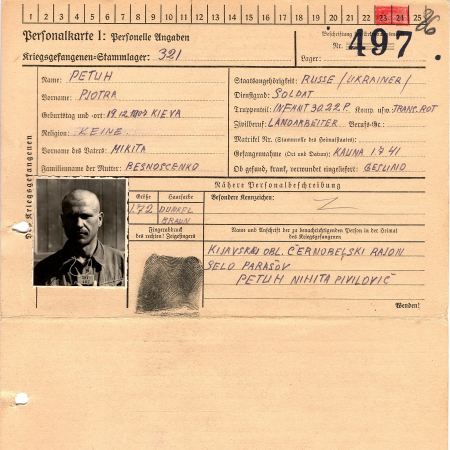 1 2 3 4 5 6 7 8 9 10 11 12 13 14 15 16 17 18 19 20 21 22 23 24 25
Personalkarte I: Personelle Angaben
Kriegsgefangenen-Stammlager: 321
Beschriftung der Erkennungsmarke
Nr. 497.
Lager:
Des Kriegsgefangenen
Name: PETUH
Vorname: PJOTRA
Geburtstag und -ort: 19.12.1904 KIEVA
Religion: KEINE
Vorname des Vaters: NIKITA
Familienname der Mutter: BESNOSCENKO
Staatsangehörigkeit: RUSSE /UKRAINER/
Dienstgrad: SOLDAT
Truppenteil: INFANT 3022.P. Komp. usw. TRANS.ROT
Zivilberuf: LANDARBEITER Berufs-Gr.:
Matrikel Nr. (Stammrolle des Heimatstaates):
Gefangennahme (Ort und Datum): KAUNA 1.7.41
Ob gesund, krank, verwundet eingeliefert: GESUND
Nähere Personalbeschreibung
Größe
Haarfarbe
Besondere Kennzeichen:
1.72 DUNKEL BRAUN
Fingerabdruck
des rechten! Zeigefingers
Name und Anschrift der zu benachrichtigenden Person in der Heimat
des Kriegsgefangenen
KIJAVSKAJ OBL. ČERNOBELSKI RAJON
SELO PARAŠOV
PETUH NIHITA PIVILOVIČ
Wenden!